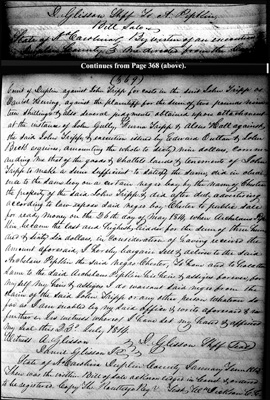 D. Glisson Shff To A. Pipkin
Bill Sale
State of No Carolina By virtue of an execution
County &
Continues from Page 368 (above).
(369)
Court of Duplin against John Tripp for costs in the said John Tripp vs
Daniel Herring, against the plaintiff for the sum of two pounds nineteen
Shillings & also several Judgments obtained upon attachment
at the instance of John Gully, & Alexr Hall against
the said John Tripp & executions issued by Edward Outlaw & John
Beck esquires, amounting the whole to sixty nine dollars, comman
ding me that of the goods & chattels lands & tenements of John
Tripp to make a sum sufficient to satisfy the same, did in obedie
nce to the same levy on a certain negro boy by the name of Chester
the property of the said John Tripp & did after duly advertising
according to law expose said negro boy Chester to public sale
for ready money on the 26th day of May 1814, when Archelaus Pip
kin became the last and highest bidder for the sum of three hun
dred & sixty six dollars, in Consideration of having received the
Amount aforesaid, I hereby bargain sell & deliver to the said
Archelaus Pipkin the said negro Chester, To have and to hold the
same to the said Archelaus Pipkin his heirs & assigns forever, for
myself my heirs & assigns I do warrant said negro from the
claim of the said John Tripp or any other person whatsoever so far
as I am enabled by my said office & writs aforesaid & no
further in witness whereof I have set my hand & affixed
my seal this 23d July 1814.
Witness A. Glisson D. Glisson Shff Seal
Daniel Glisson Jr
State No Carolina Duplin County January Term 1815
Then was the within Bill of Sale acknowledged in Court & ordered
to be registered. Copy